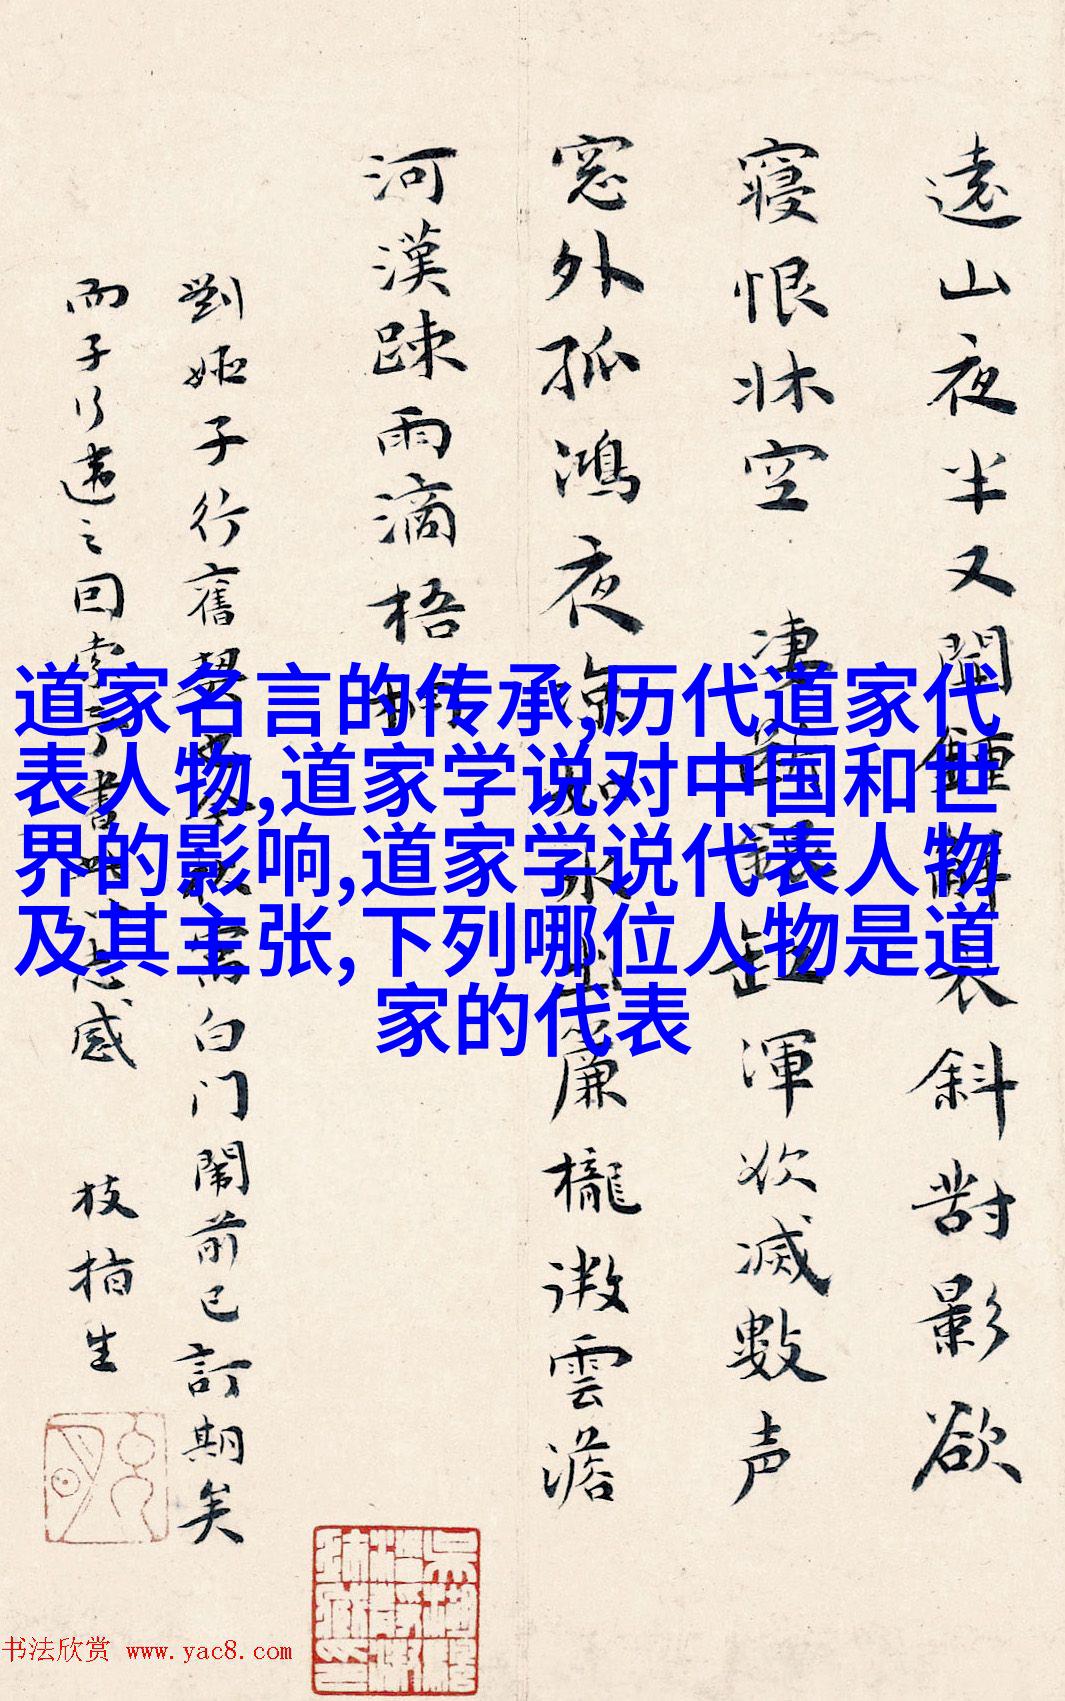 遠山夜半又聞鍾解衣斜對影欲
寢恨牀空 凄 缸渾欲滅數声
窓外孤鴻夜涼如水 廉櫳微雲澹
河漢踈雨滴梧桐
劉姬子行舊 寓白门闈前已訂期矣
而子行違之回索 書此以志感 枝指生
道家名言的传承,历代道家代
表人物,道家学说对中国和世
界的影响,道家学说代表人物
及其主张,下列哪位人物是道
家的代表
书法欣赏 www.yac8.com